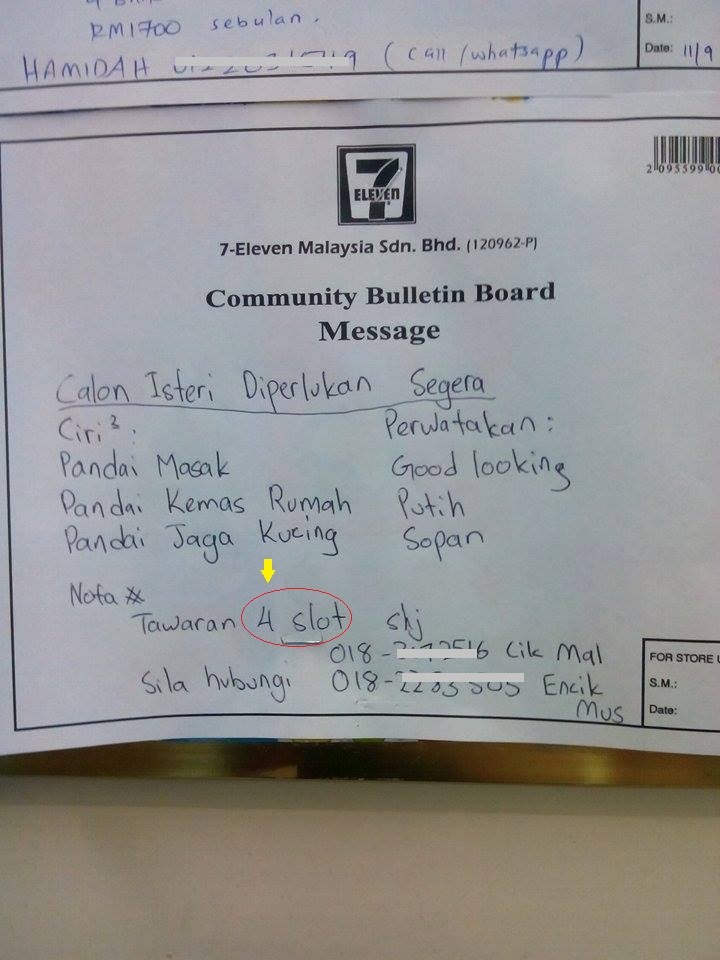 RM1700 sebulan.
HAMIDAH (call/whatsapp)
S.M.:
Date: 11/9
7
ELEVEN
7-Eleven Malaysia Sdn. Bhd. (120962-P)
Community Bulletin Board
Message
Calon Isteri Diperlukan Segera
Ciri²: Perwatakan:
Pandai Masak Good looking
Pandai Kemas Rumah Putih
Pandai Jaga Kucing Sopan
Nota *
Tawaran 4 slot shj
018- 6 Cik Mal
Sila hubungi 018- Encik
Mus
FOR STORE U
S.M.:
Date: